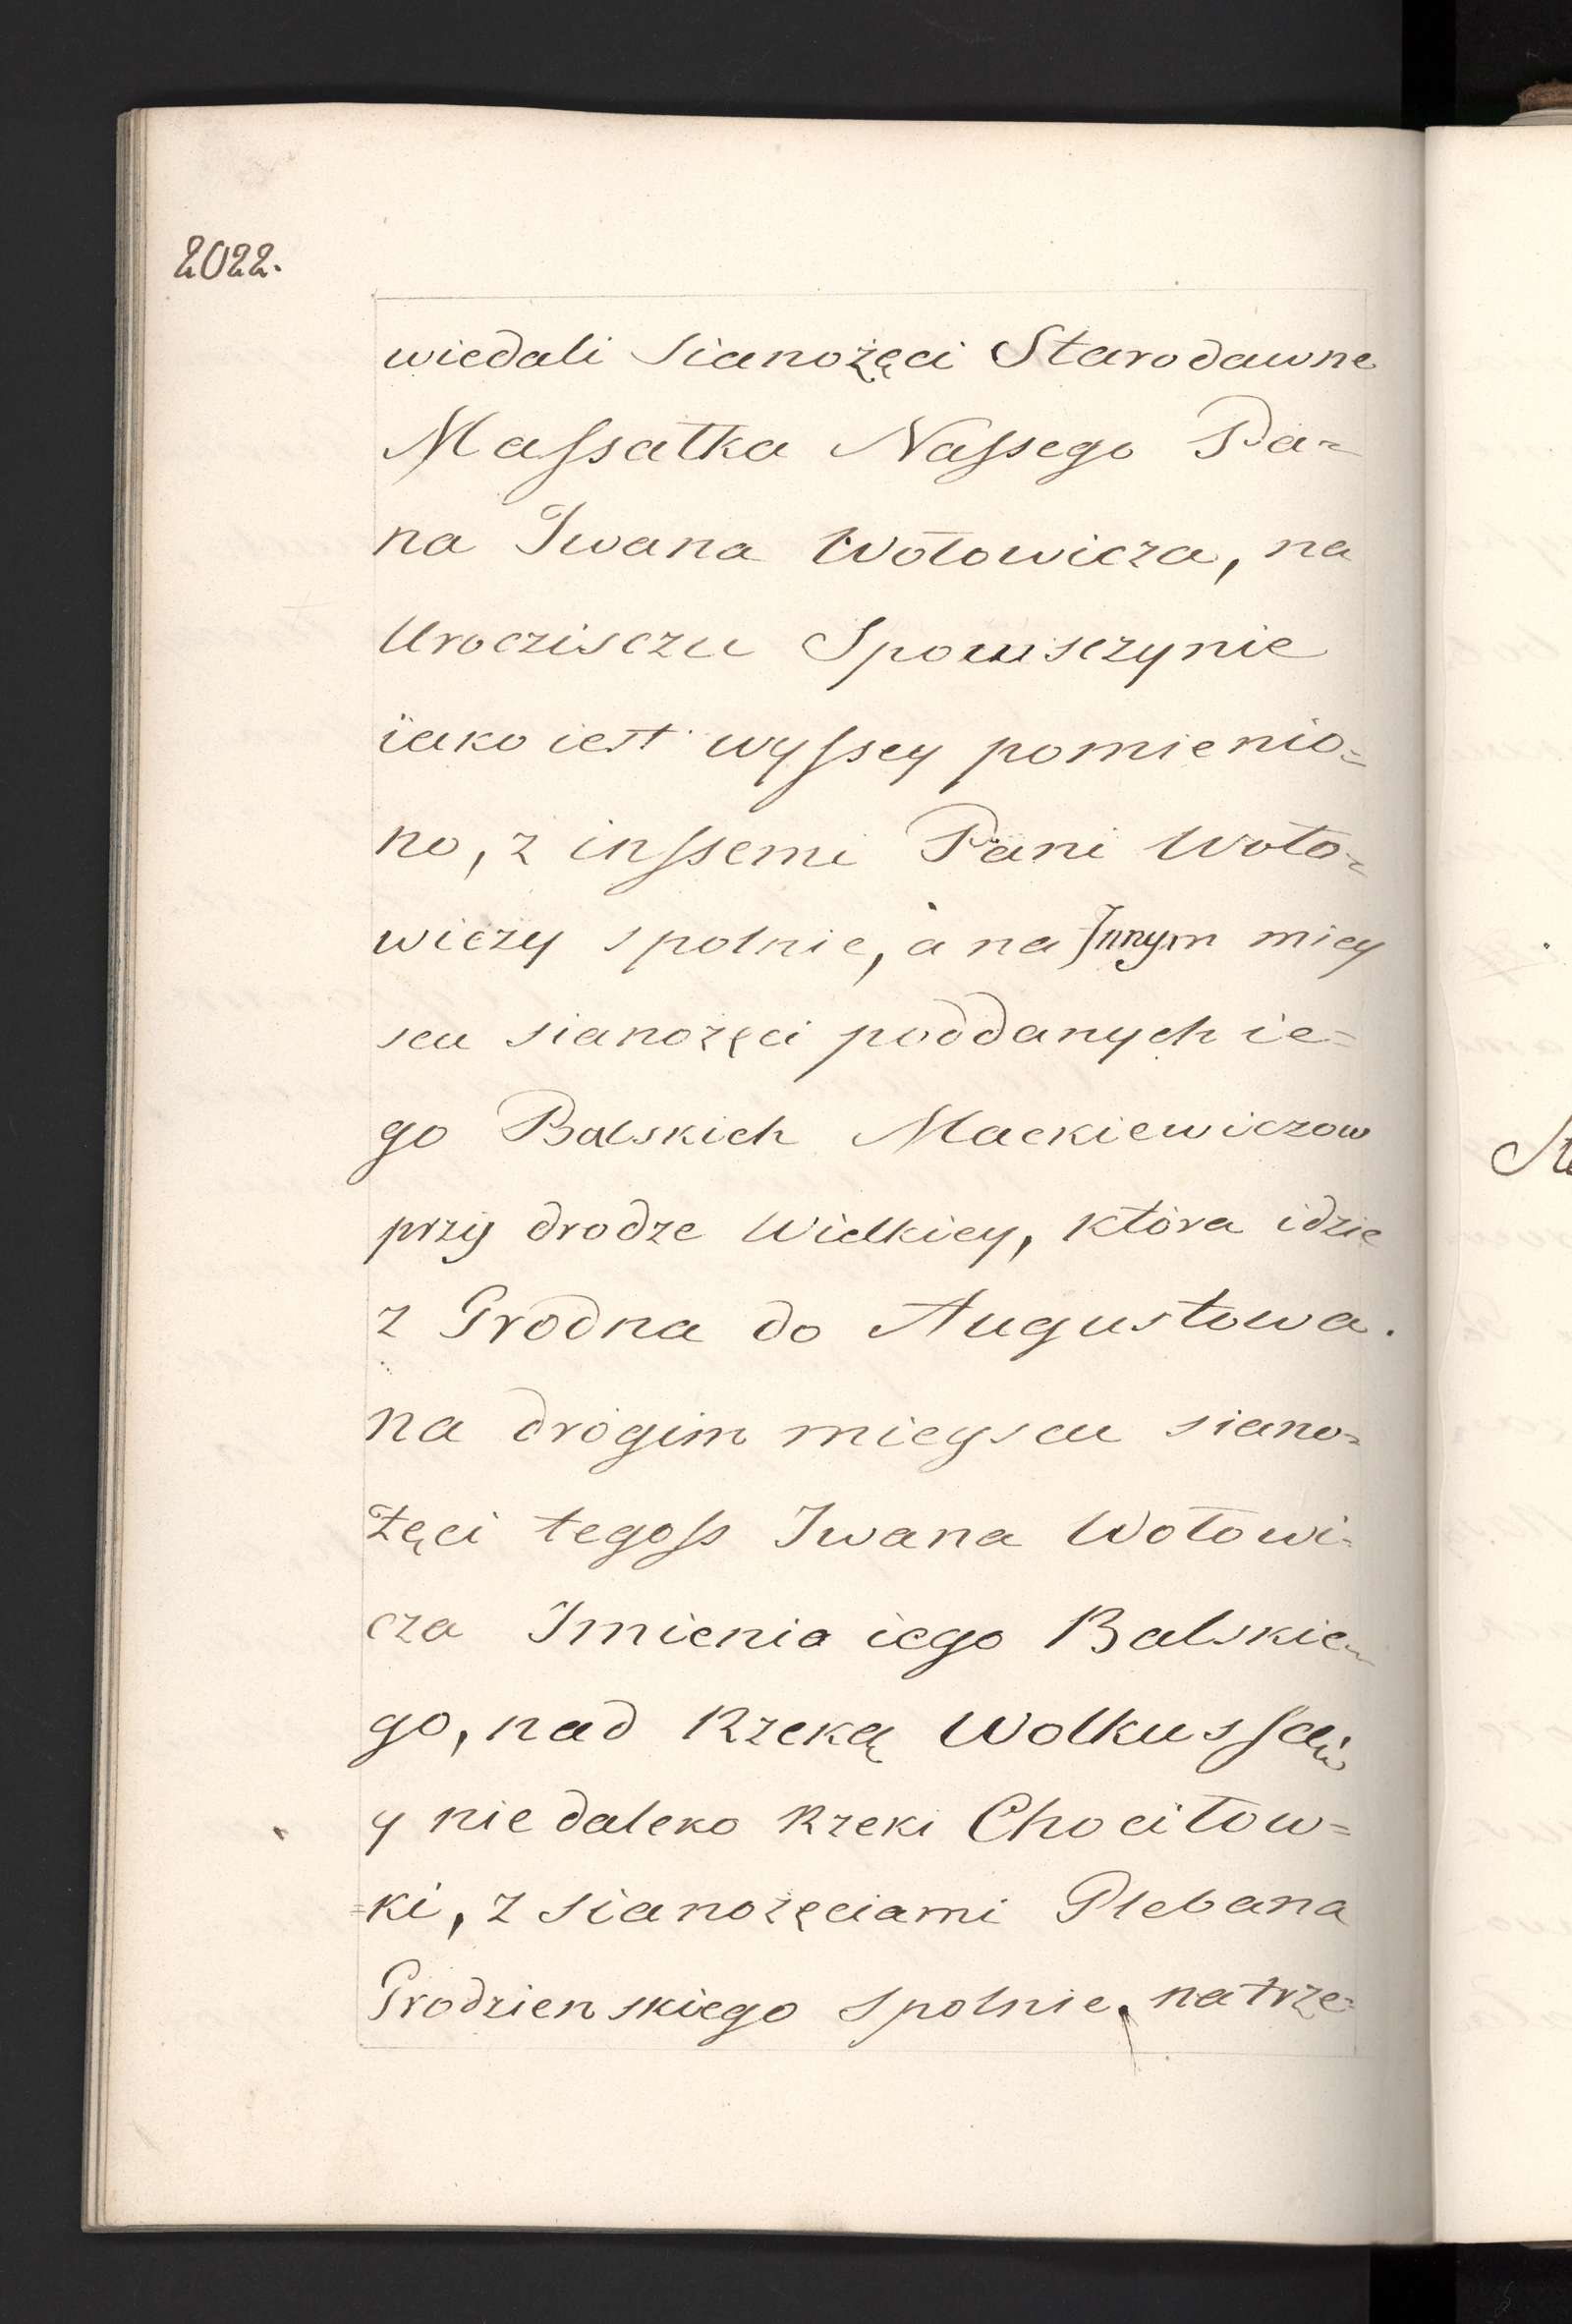 2022.
wiedali sianożęci Starodawne
Maſsałka Naſsego Pa=
na Jwana Wołowicza, na
Uroczisczu Spowsczynie
iako iest wyſsey pomienio=
no, z inſsemi Pani Woło=
wiczy spolnie, à na Jnnym miey
scu sianożęci poddanych ie=
go Balskich Mackiewiczow
przy drodze Wielkiey, która idzie
z Grodna do Augustowa.
na drógim mieyscu siano=
żęci tegoſs Jwana Wołowi=
cza Jmienia iego Balskie=
go, nad Rzeką
y nie daleko Rzeki Chociłow=
=ki, z sianożęciami Plebana
Grodzienskiego spolnie, na trze=
St